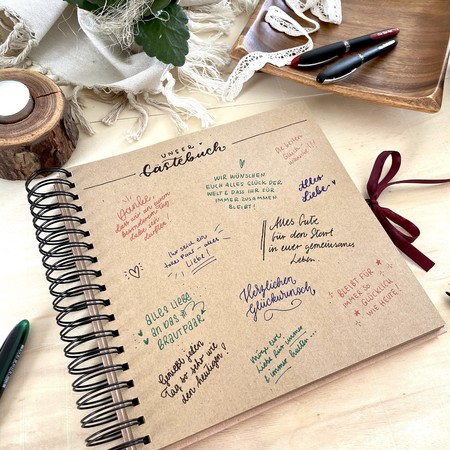 UNSER
Gästebuch
Die besten
Glück-
wünsche!!
WIR WÜNSCHEN
EUCH ALLES GLÜCK DER
WELT & DASS IHR FÜR
IMMER ZUSAMMEN
BLEIBT!
Alles
Liebe
Danke,
dass wir an eurem
besonderen Tag
dabei sein
durften!
Alles Gute
für den Start
in euer gemeinsames
Leben.
Ihr seid ein
tolles Paar - alles
Liebe!
Herzlichen
Glückwunsch
BLEIBT FÜR
IMMER SO
GLÜCKLICH
WIE HEUTE!
ALLES LIEBE
AN DAS
BRAUTPAAR
Möge eure
Liebe für immer
& immer halten...
Genießt jeden
Tag so sehr wie
den heutigen!